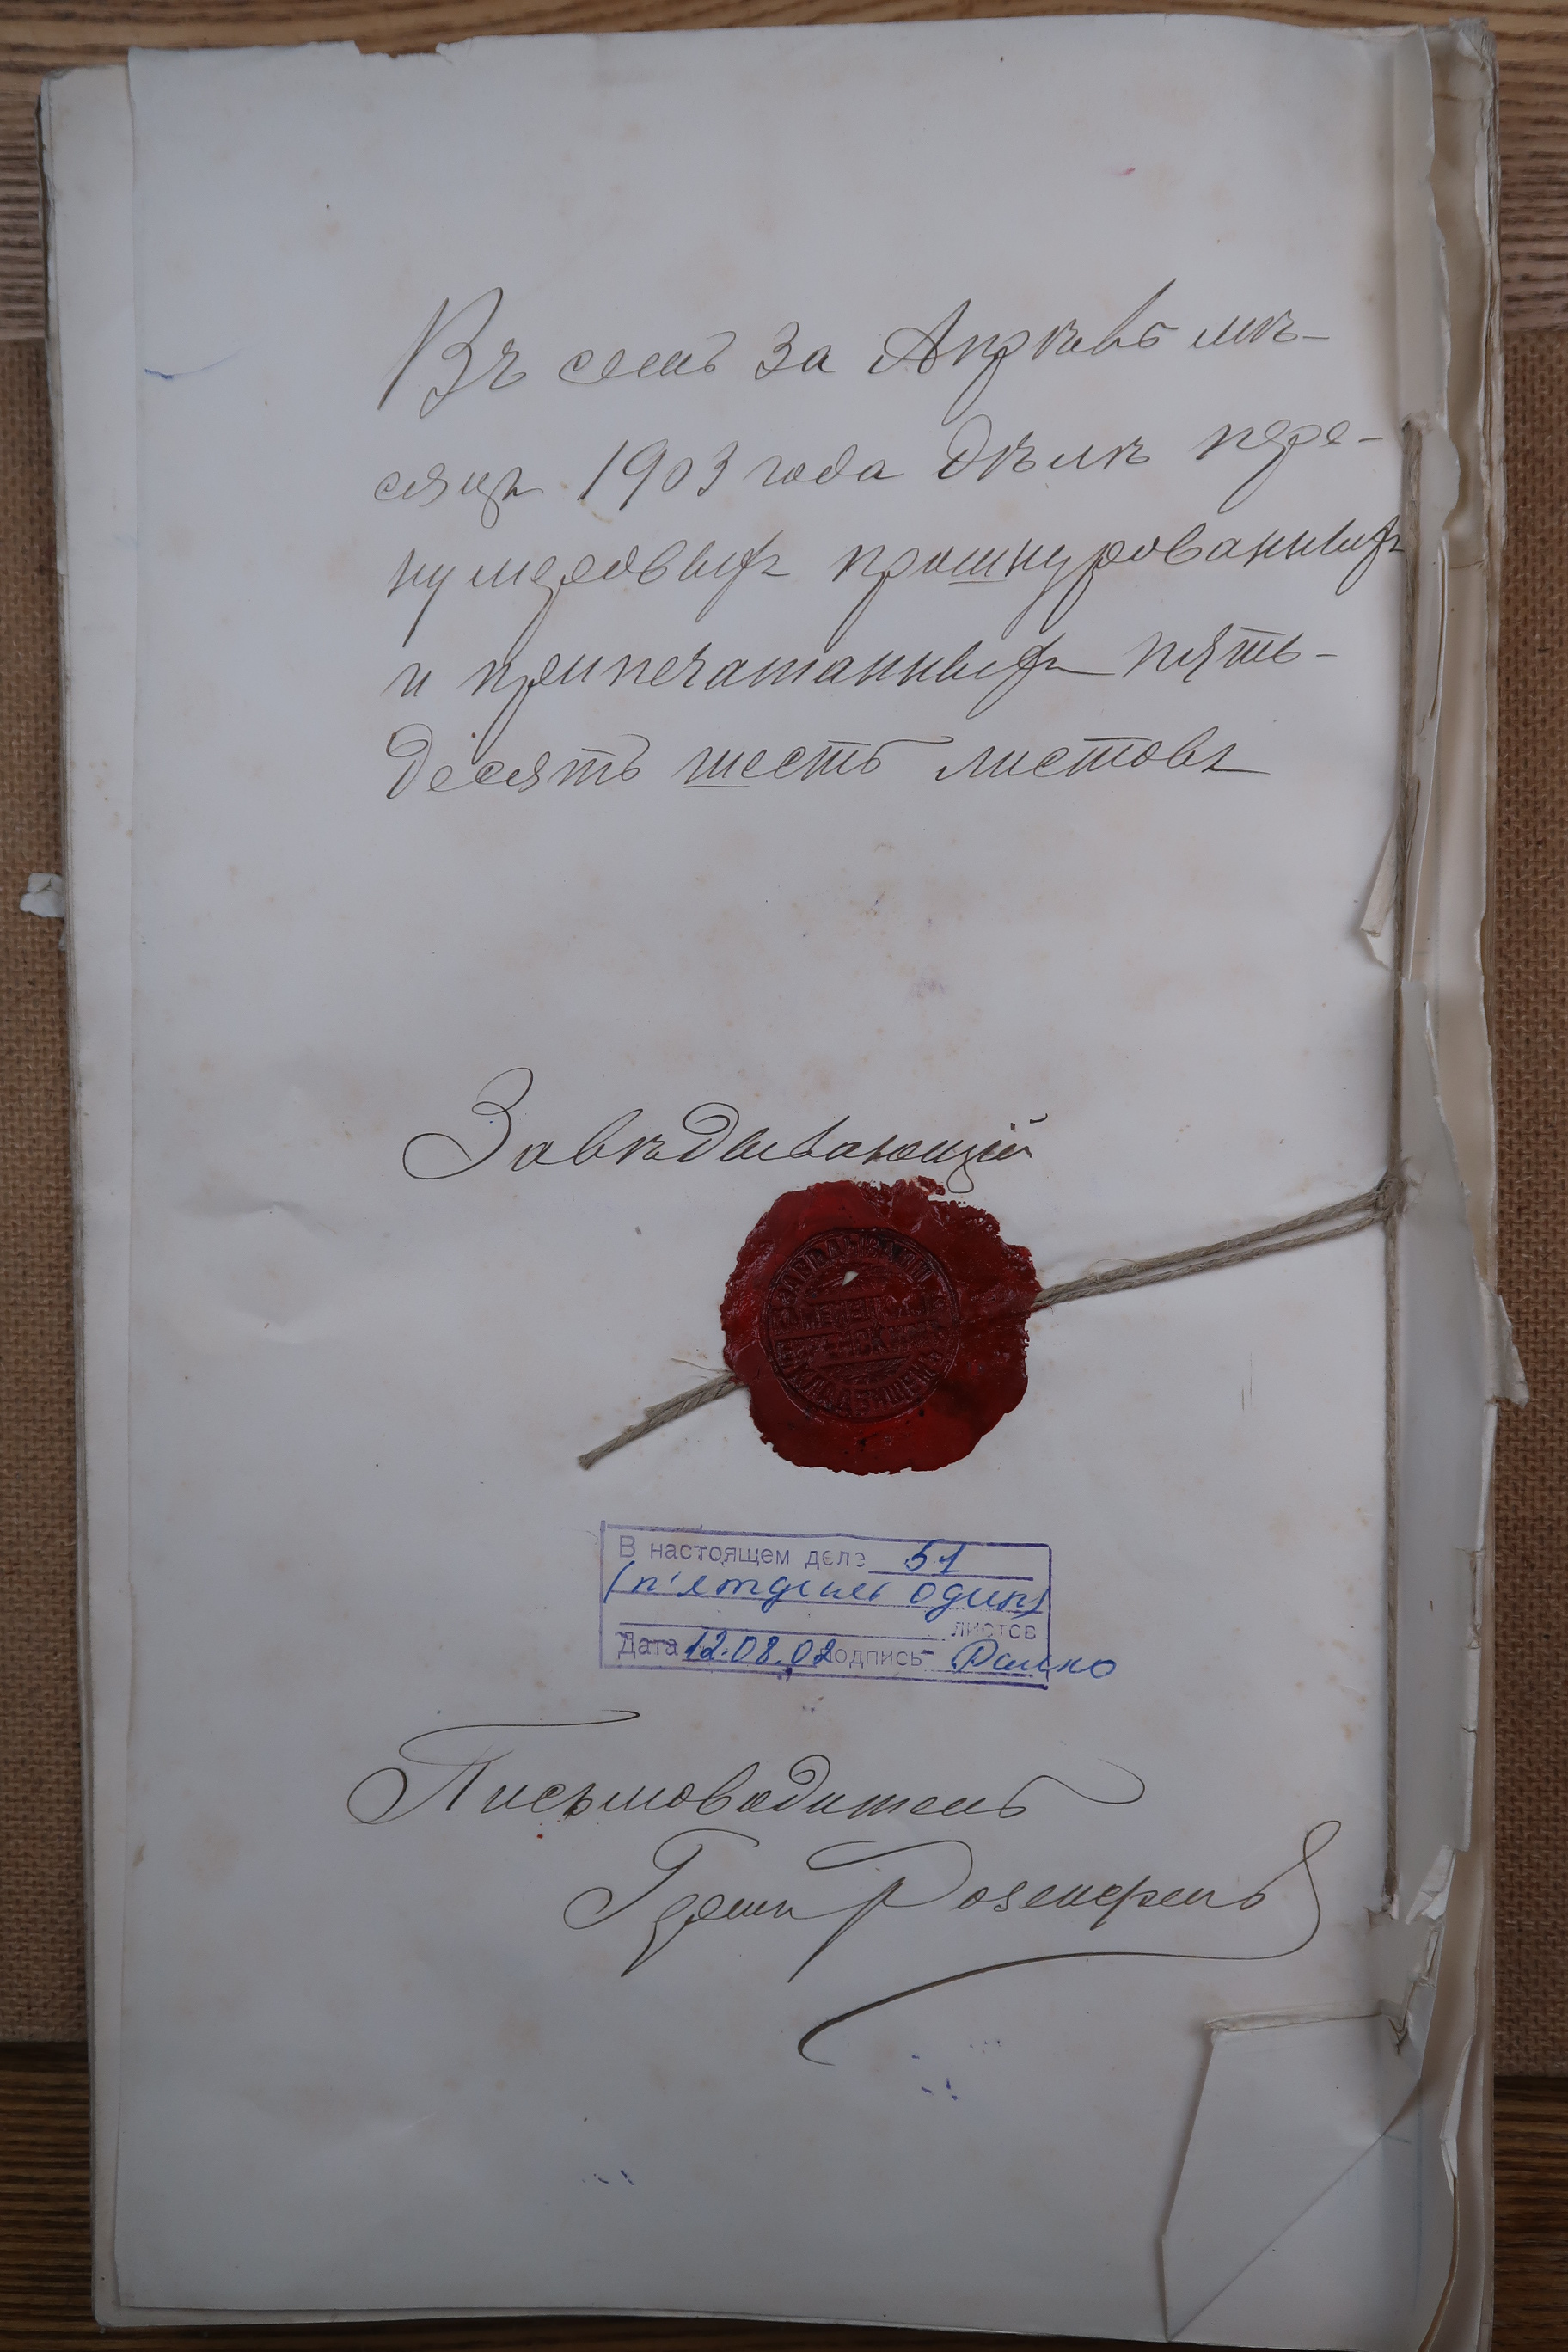 Въ семъ за Апрѣль мѣ-
сяцъ 1903 года дѣлѣ пере-
нумеровыхъ прошнурованныхъ
и припечатанныхъ пять-
десятъ шесть листовъ
Завѣдывающій
В настоящем деле 51
(п'ятдесят один)
листов
Дата 12.08.02 подпись
Письмоводитель